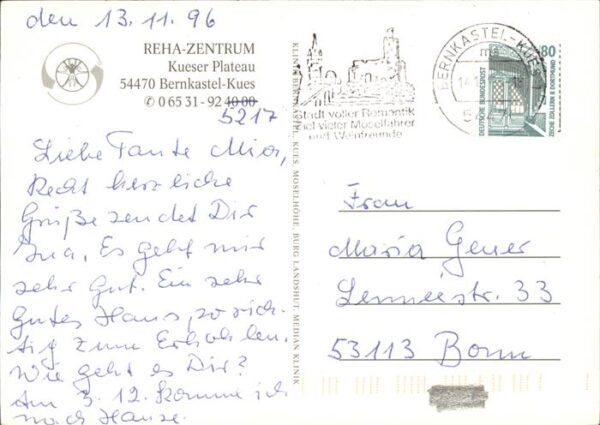 den 13.11.96
REHA-ZENTRUM
Kueser Plateau
54470 Bernkastel-Kues
✆ 0 65 31 - 92 40 00
5217
Liebe Tante Mia,
Recht herzliche
Grüße sendet Dir
Ina, Es geht mir
sehr Gut. Ein sehr
Gutes Haus, so rich-
tig zum Erhohlen.
Wie geht es Dir?
Am 3.12. komme ich
nach Hause.
KUES, MOSELHÖHE, BURG LANDSHUT, MEDIAN KLINIK
Stadt voller Romantik
Ziel vieler Moselfahrer
und Weinfreunde
BERNKASTEL-KUES
80
DEUTSCHE BUNDESPOST
ZECHE ZOLLERN II DORTMUND
Frau
Maria Geuer
Lenneéstr. 33
53113 Bonn